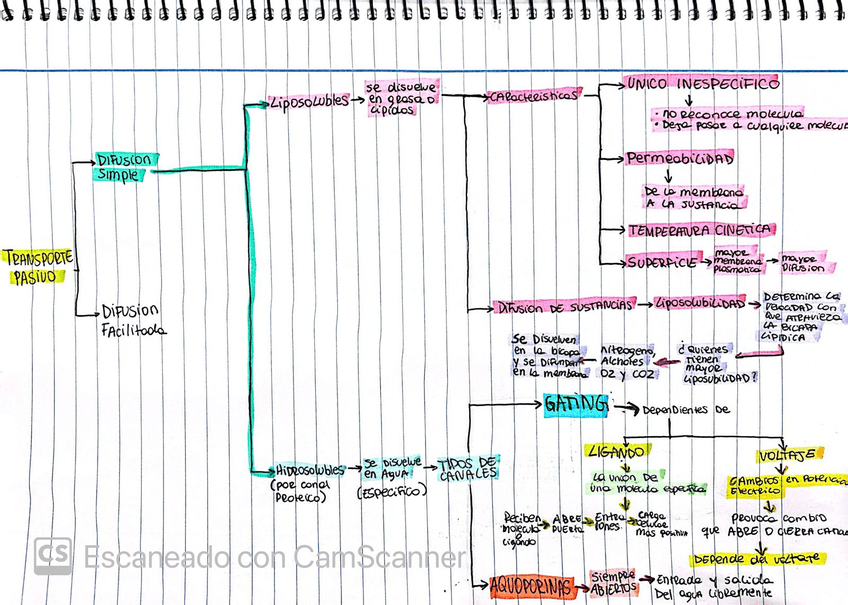 TRANSPORTE
PASIVO
DIFUSION
Simple
DIFUSION
FACilitada
Liposolubles
se disuelve
en grasa o
lipidos
CARacteristicas
UNICO INESPECÍFICO
• no Reconoce molecula
• Deja pasar a cualquier molecul
Permeabilidad
De la membrana
A LA SUSTANCIA
TEMPERATURA CINETICA
SUPERFICIE
mayor
membrana
plasmatica
mayor
DIFUSION
DIFUSION DE SUSTANCIAS
LIPOSOLUBILIDAD
DETERMINA LA
VELOCIDAD CON
QUE ATRAVIEZA
LA BICAPA
LIPIDICA
¿Quienes
Tienen
mayor
Liposubilidad?
Nitrogeno,
Alcholes
O2 y CO2
Se Disuelven
en la bicapa
y se DIFUNDEN
en la membrana
Hidrosolubles
(por canal
Proteico)
Se disuelve
en Agua
(ESPECIFICO)
TIPOS DE
CANALES
GATING
Dependientes De
LIGANDO
La union De
una molecula especifica
Reciben
molecula
o
ligando
ABRE
PUERTA
Entra
iones
CARGA
celular
mas positiva
VOLTAJE
CAMBIOS en Potencia
Electrico
Provoca cambio
que ABRE O CIERRA CANAL
Depende del voltaje
AQUOPORINAS
Siempre
ABIERTOS
Entrada y salida
Del agua libremente
CS Escaneado con CamScanner